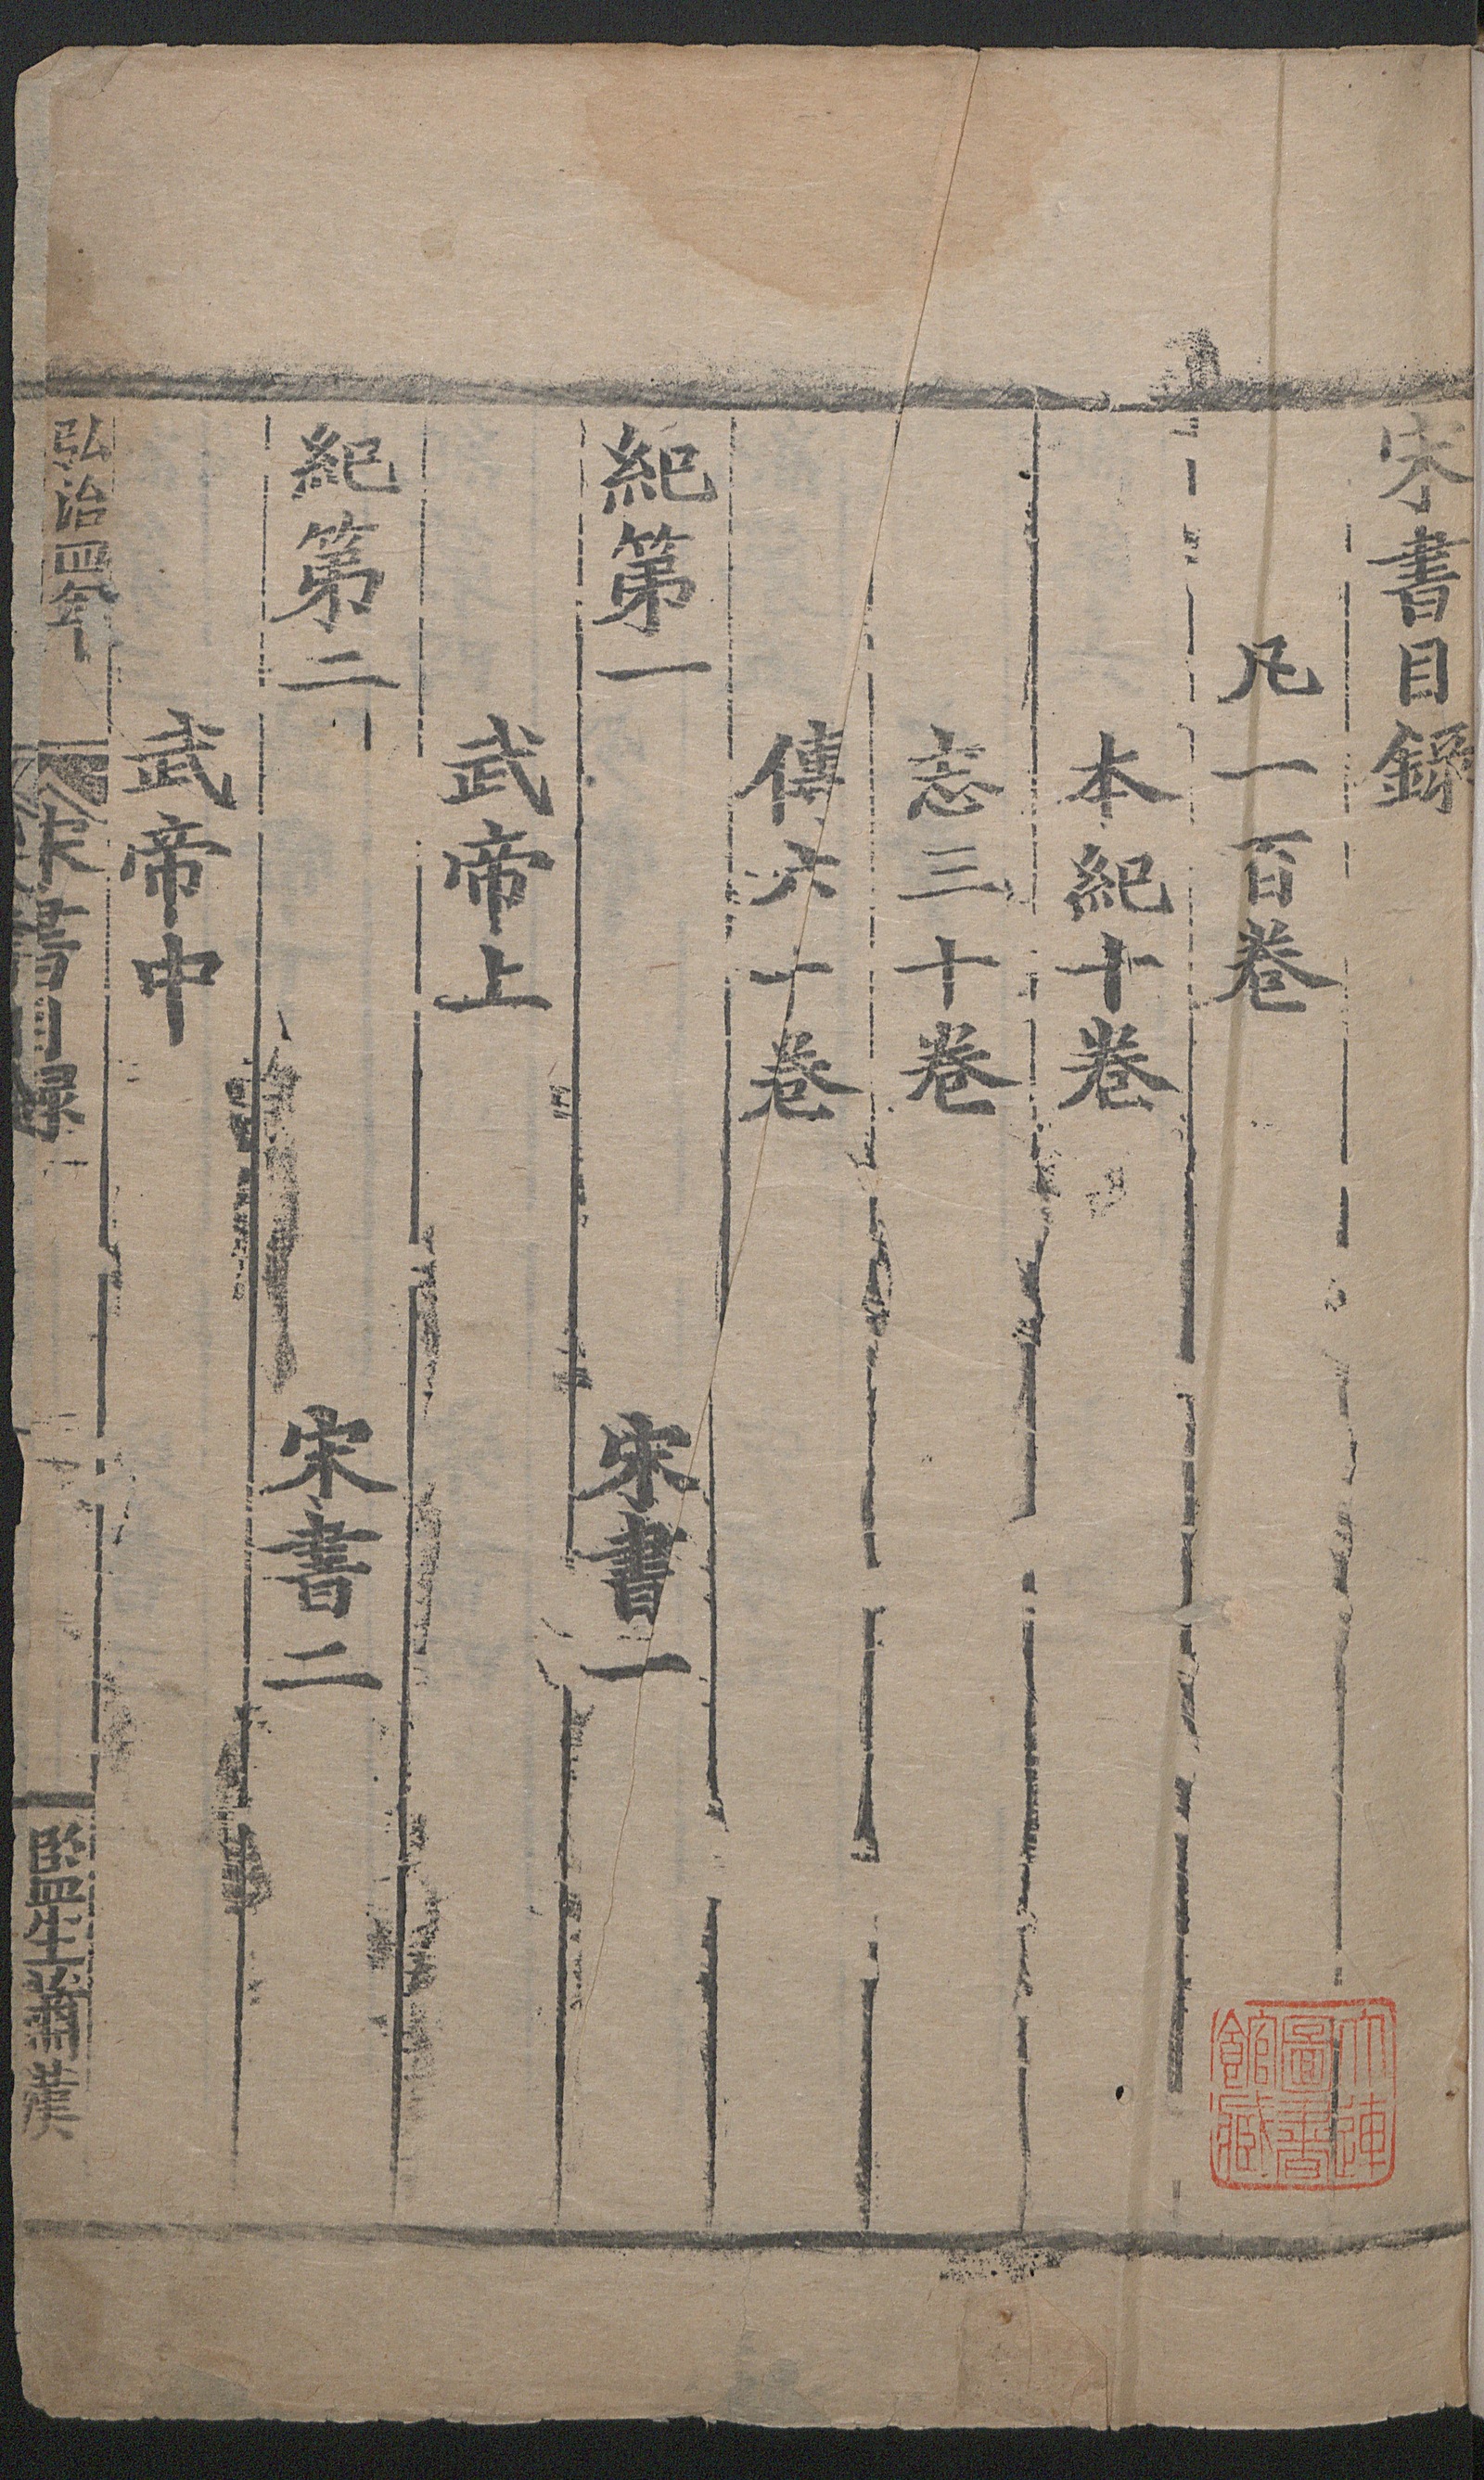 宋書目録
凡一百卷
本紀十卷
志三十卷
傳六十卷
紀第一 宋書一
武帝上
紀第二 宋書二
武帝中
弘治四年 宋書目録 一 監生蕭漢
大連圖書館藏